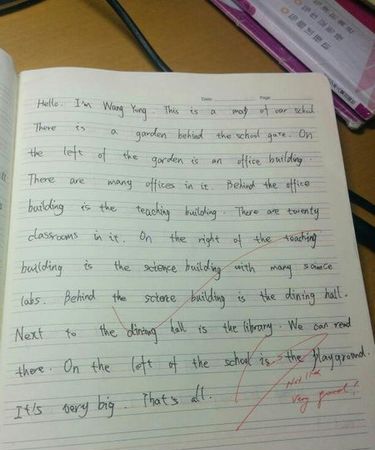 Date: Page:
Hello. I'm Wang Yang. This is a map of our school
There is a garden behind the school gate. On
the left of the garden is an office building.
There are many offices in it. Behind the office
building is the teaching building. There are twenty
classrooms in it. On the right of the teaching
building is the science building with many science
labs. Behind the science building is the dining hall.
Next to the dining hall is the library. We can read
there. On the left of the school is the playground.
It's very big. That's all.
very good!